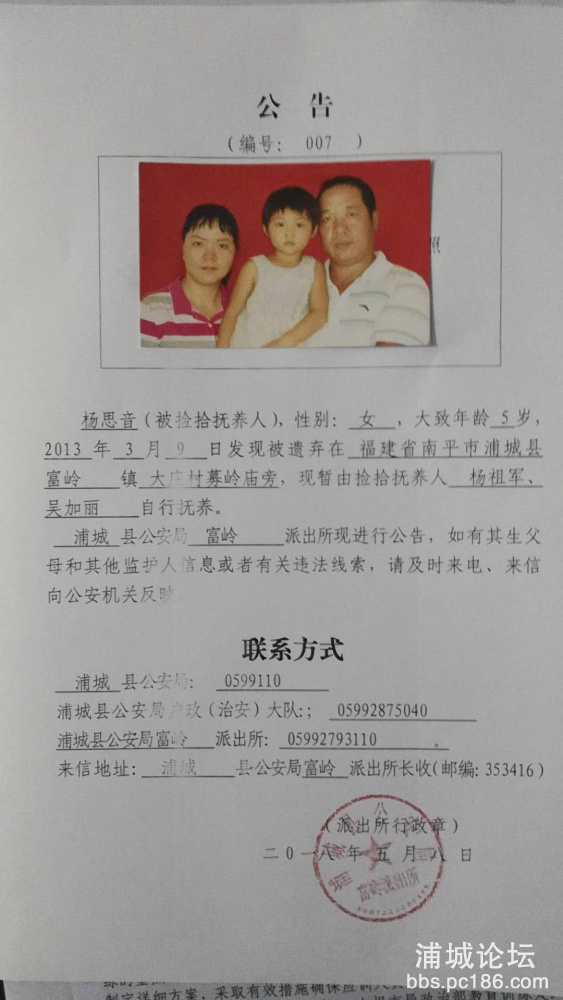 公 告
（编号： 007 ）
照
杨思音（被捡拾抚养人），性别： 女 ，大致年龄 5 岁，
2013 年 3 月 9 日发现被遗弃在 福建省南平市浦城县
富岭 镇 大庄村募岭庙旁，现暂由捡拾抚养人 杨祖军、
吴加丽 自行抚养。
浦城 县公安局 富岭 派出所现进行公告，如有其生父
母和其他监护人信息或者有关违法线索，请及时来电、来信
向公安机关反映
联系方式
浦城 县公安局： 0599110
浦城县公安局户政（治安）大队:； 05992875040
浦城县公安局富岭 派出所： 05992793110 。
来信地址： 浦城 县公安局富岭 派出所长收(邮编：353416)
（派出所行政章）
二〇一八年 五 月 八 日
制定详细方案，采取有效措施确保应
浦城论坛
bbs.pc186.com